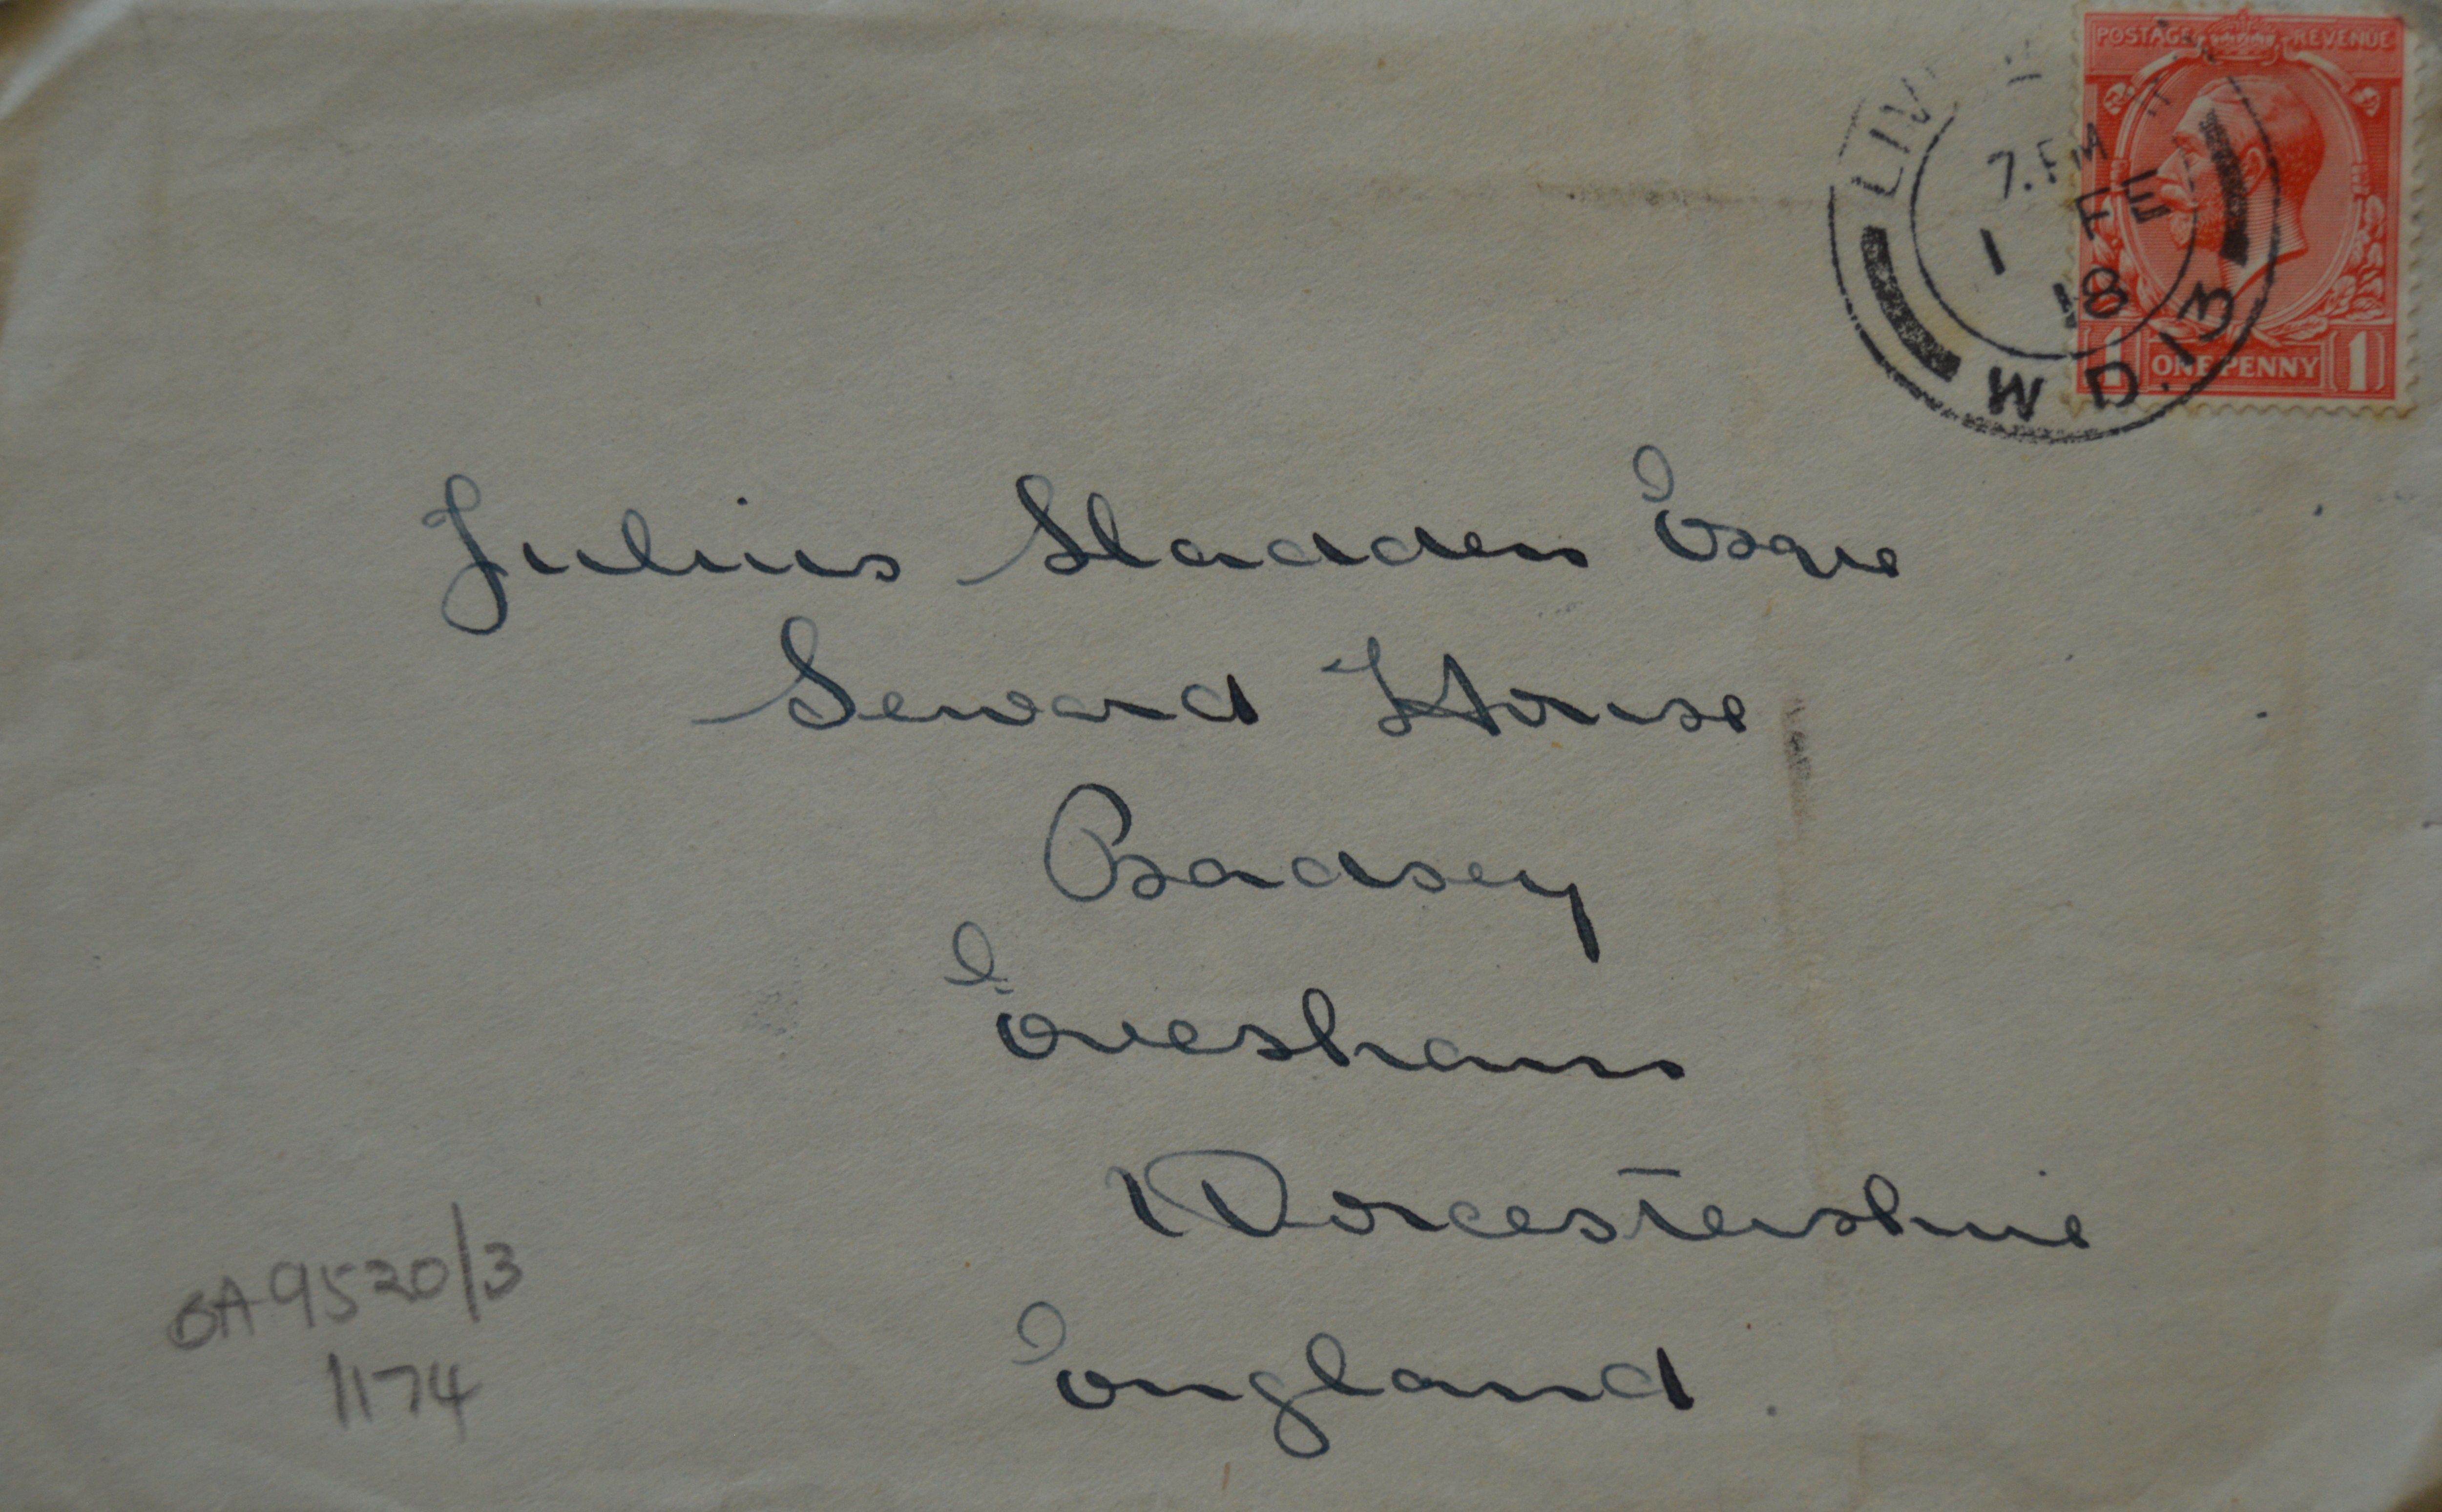 POSTAGE REVENUE
LIV
7.PM
1 FE
18
W.D.13
1 ONE PENNY 1
Julius Sladden Esqre
Seward House
Badsey
Evesham
Worcestershire
England.
BA9520/3
1174